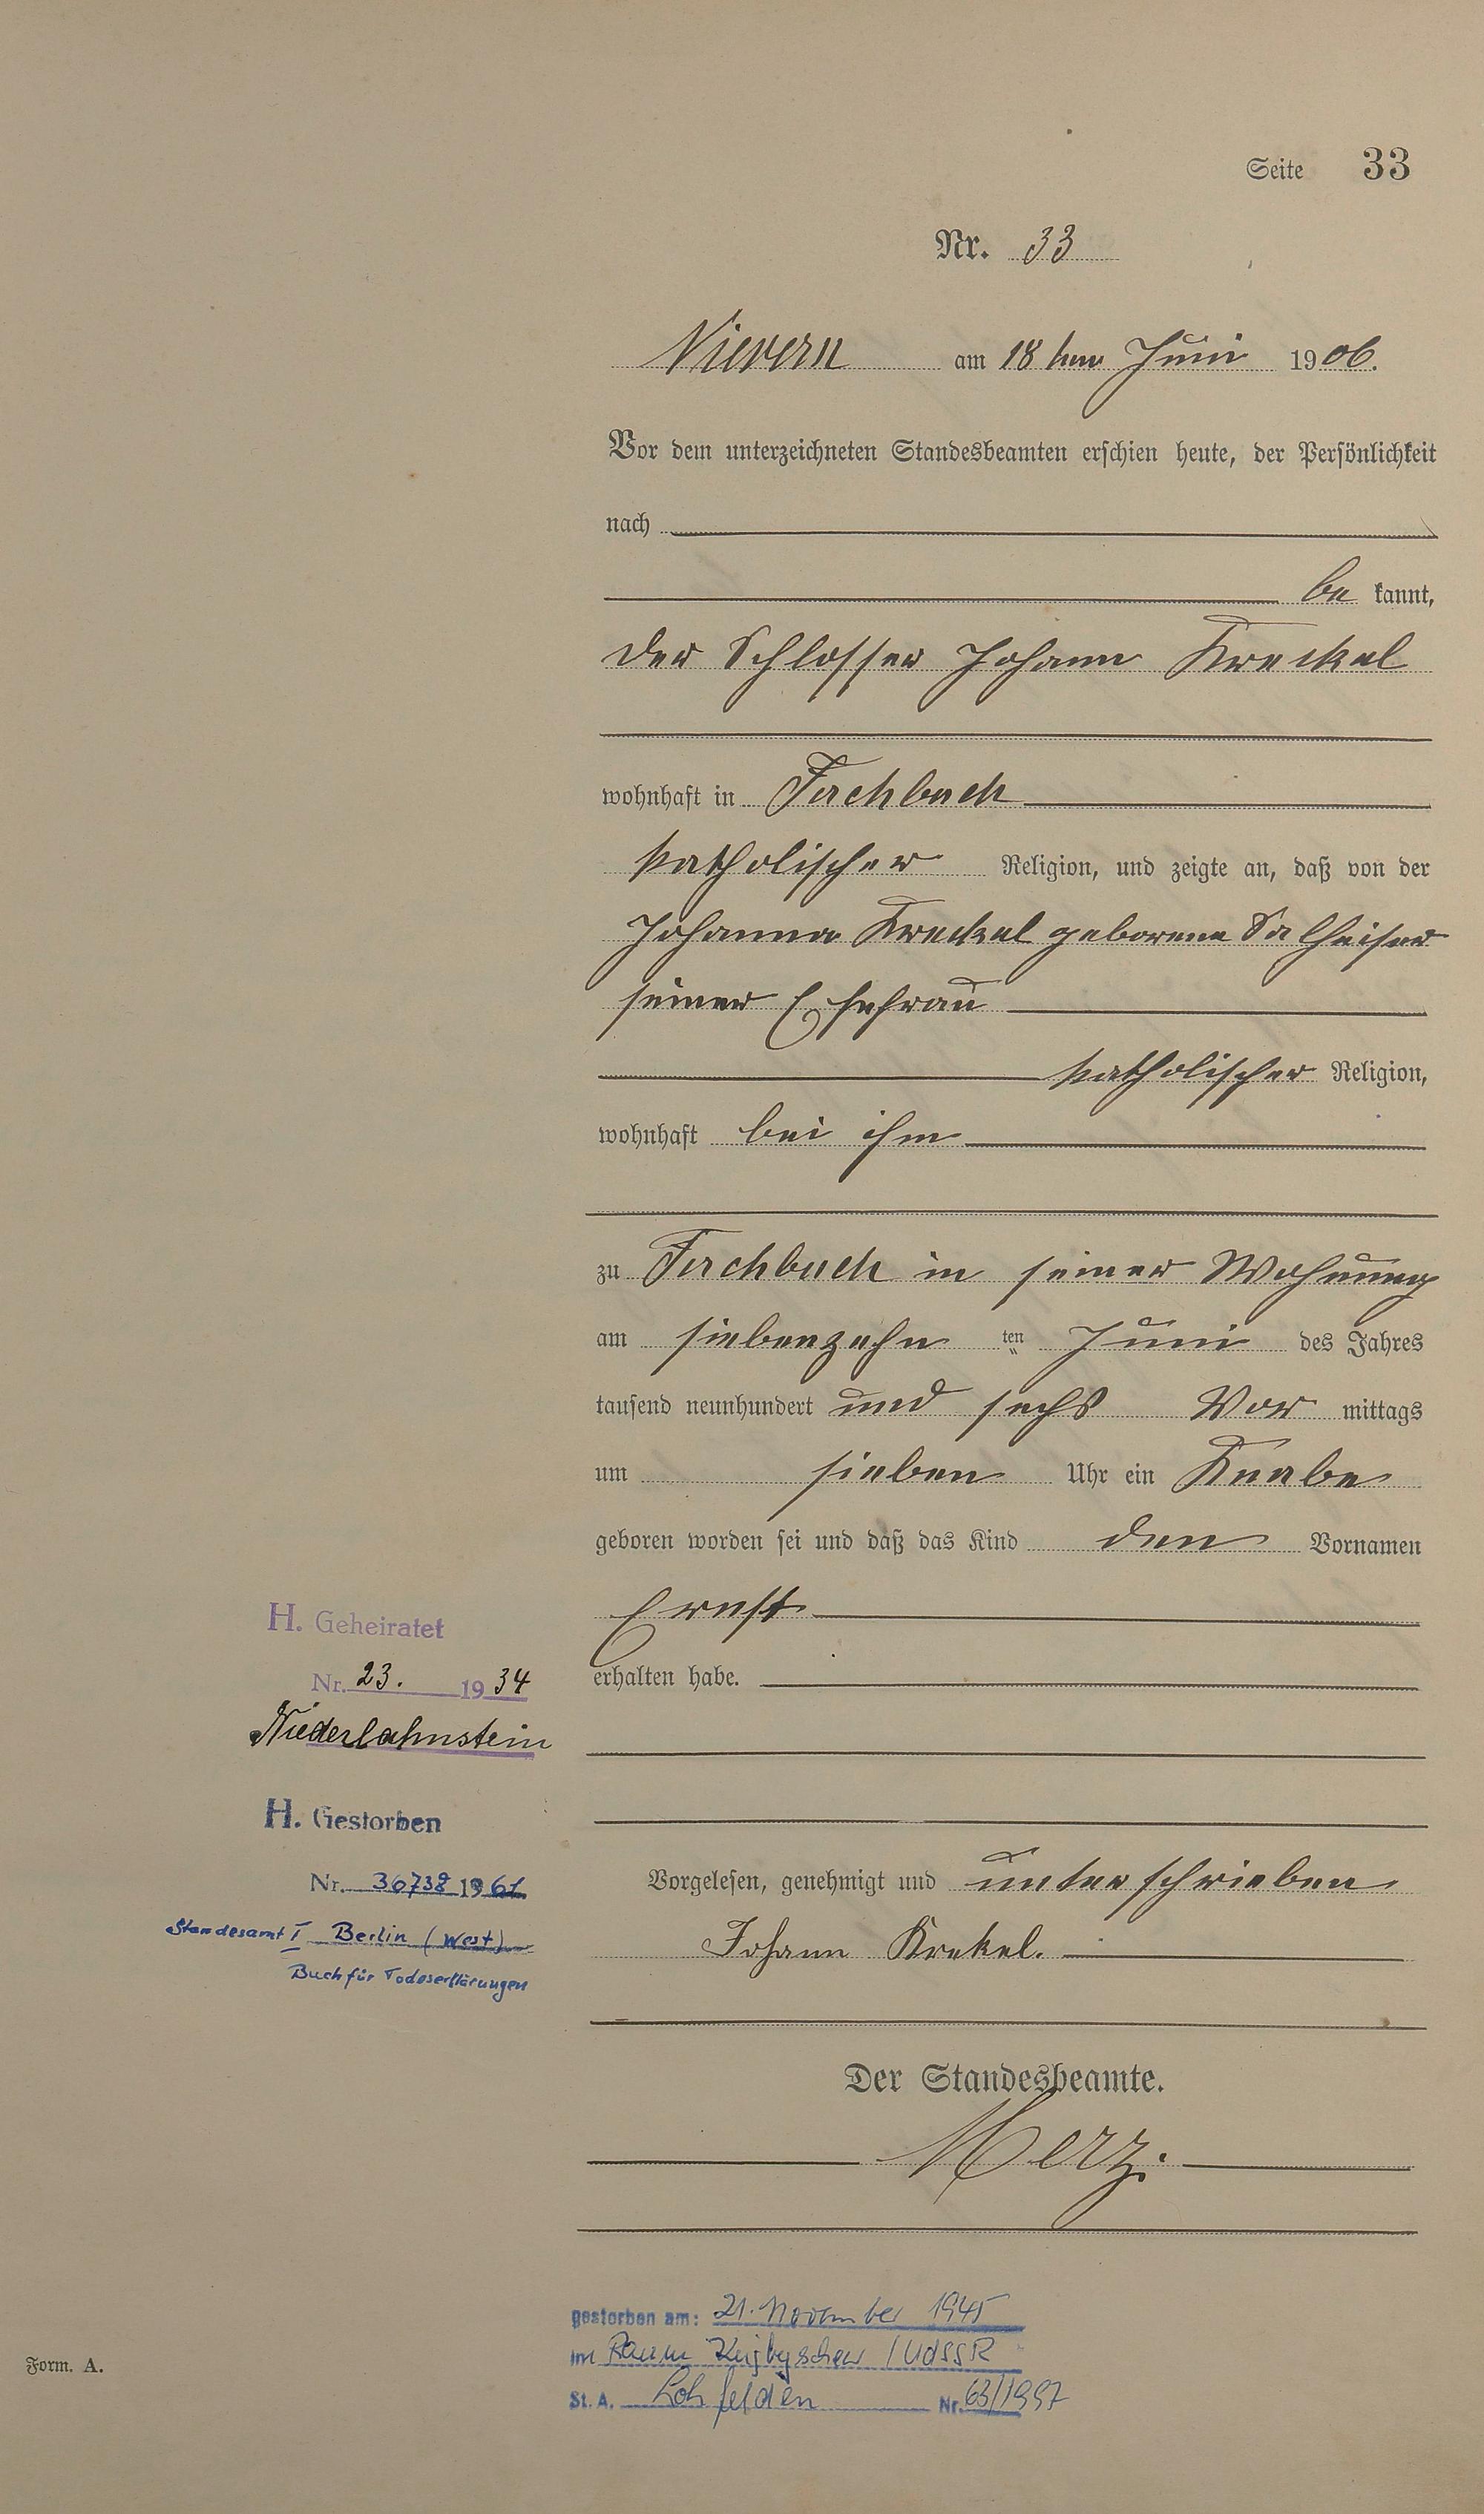 Seite 33
Nr. 33
Nievern am 18 ten Juni 1906.
Vor dem unterzeichneten Standesbeamten erschien heute, der Persönlichkeit
nach
be kannt,
der Schlosser Johann Kreckel
wohnhaft in Fachbach
katholischer Religion, und zeigte an, daß von der
Johanna Kreckel geborene Salheiser
seiner Ehefrau
katholischer Religion,
wohnhaft bei ihm
zu Fachbach in seiner Wohnung
am siebenzehn ten Juni des Jahres
tausend neunhundert und sechs Vor mittags
um sieben Uhr ein Knabe
geboren worden sei und daß das Kind den Vornamen
Ernst
erhalten habe.
H. Geheiratet
Nr. 23. 1934
Niederlahnstein
H. Gestorben
Nr. 36738 1961
Standesamt I Berlin (West)
Buch für Todeserklärungen
Vorgelesen, genehmigt und unterschrieben
Johann Krekel.
Der Standesbeamte.
Merz.
gestorben am: 21. November 1945
im Raum Kujbyschew / UdSSR
St. A. Lohfelden Nr. 63/1997
Form. A.